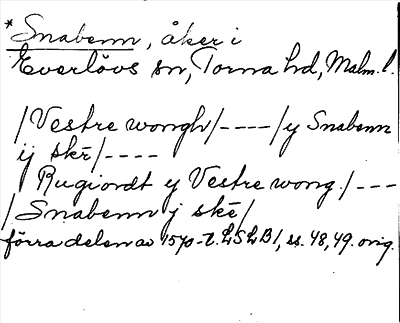 *Snabenn, åker i
Everlövs sn, Torna hd, Malm. l.
/Vestre wongh/----/y Snabenn
ij skē/----
/Rugiordt y Vestre wong./---
/Snabenn j skē/
förra delen av 1570-t. LSLB1, ss. 48, 49. orig.